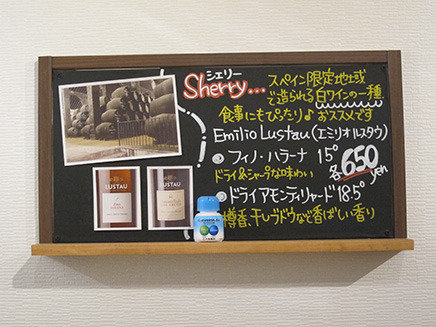 シェリー
Sherry...
スペイン限定地域
で造られる白ワインの一種
食事にもぴったり♪おススメです
Emilio Lustau(エミリオルスタウ)
フィノ・ハラーナ 15°
ドライ&シャープな味わい
各650yen
ドライアモンティリャード 18.5°
樽香、干しブドウなど香ばしい香り
LUSTAU
LUSTAU